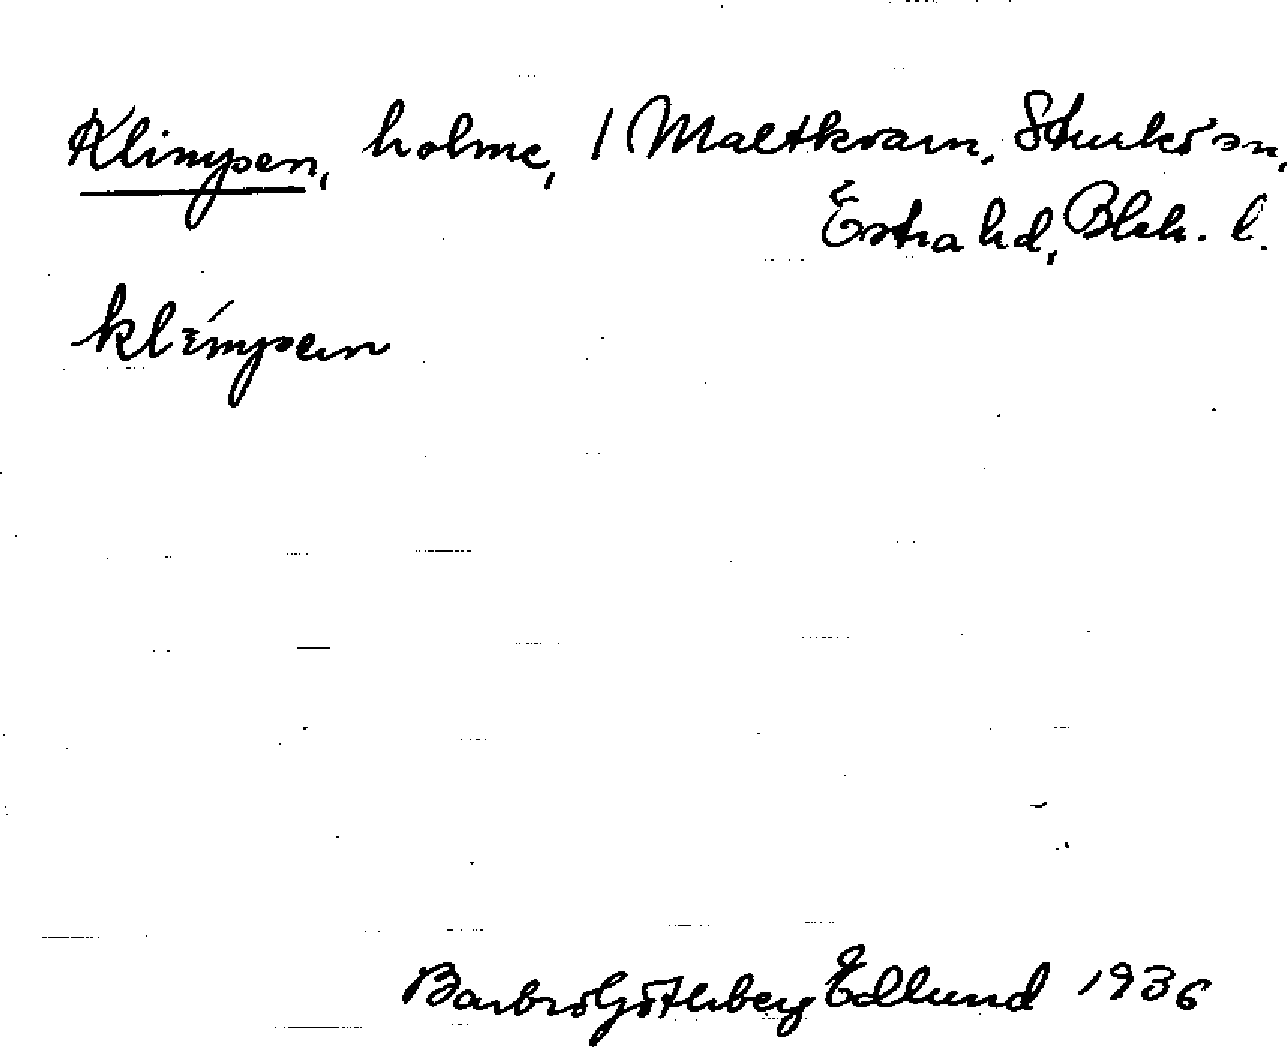 Klimpen, holme, / Maltkvarn, Sturkö sn,
Östra hd, Blek. l.
klímpen
Barbro Götherberg Edlund 1936